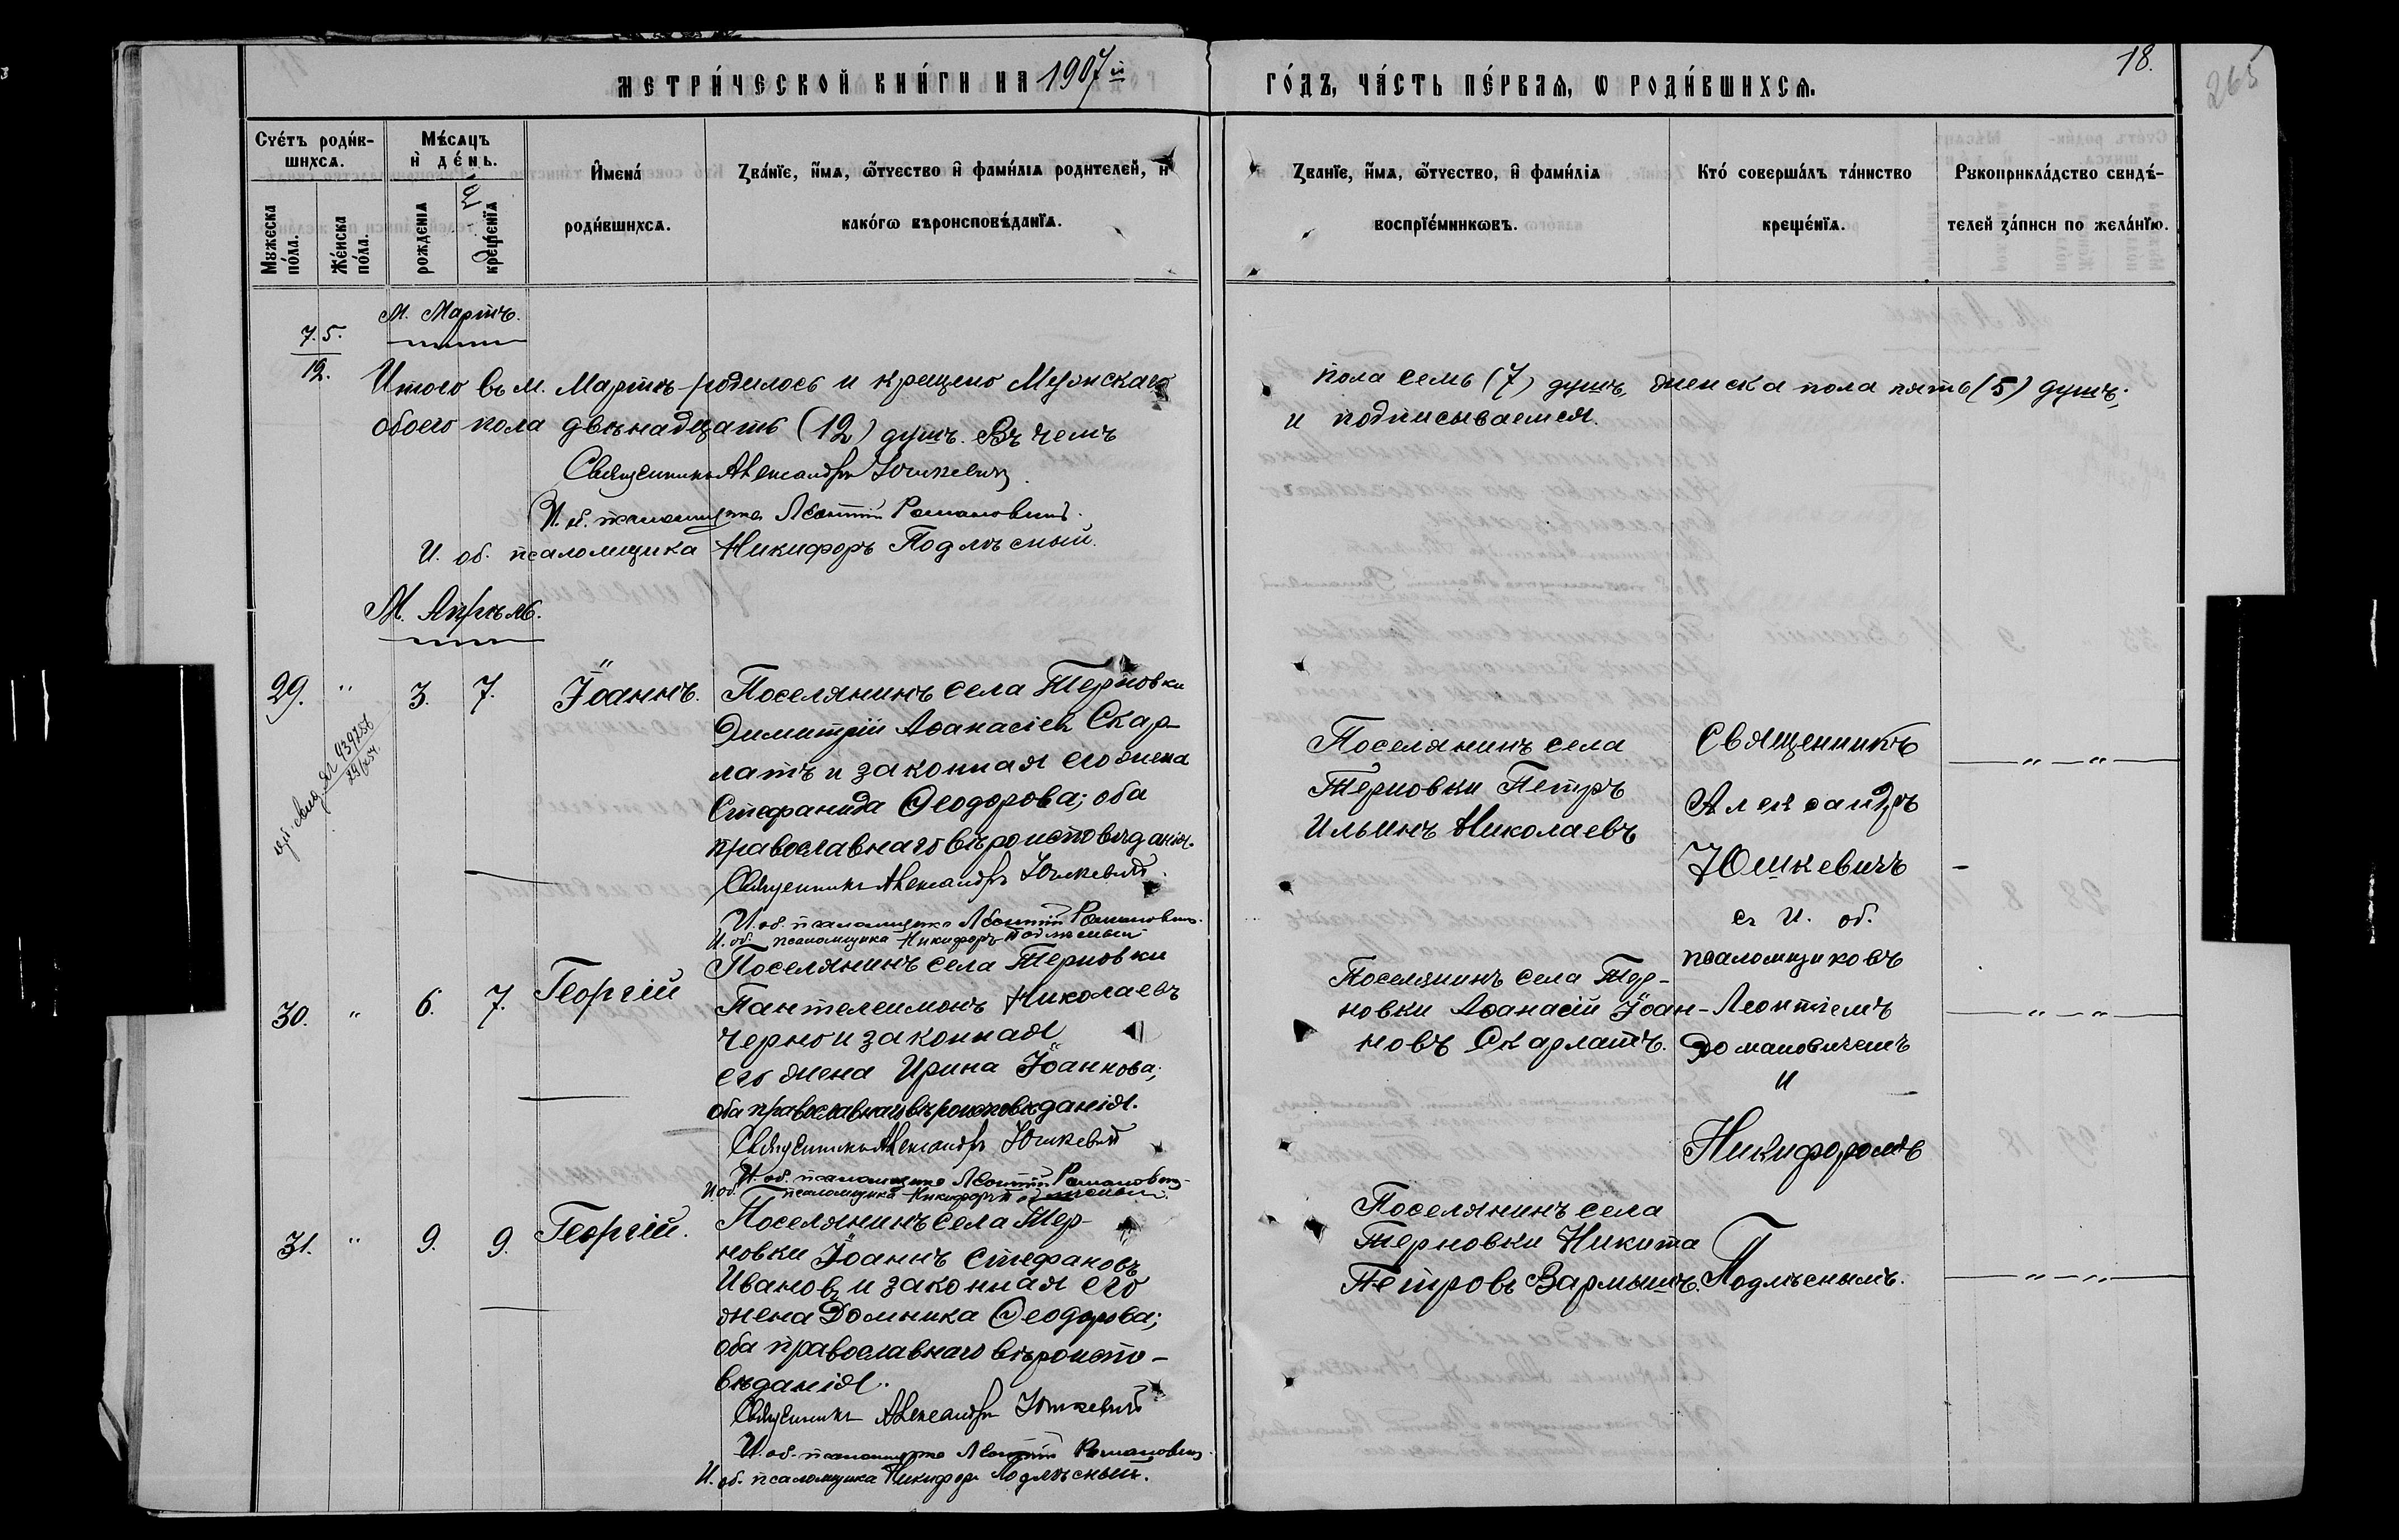 МЕТРИ́ЧЕСКОЙ КНИ́ГИ НА 1907й ГО́ДЪ, ЧА́СТЬ ПЕ́РВАѦ, Ѡ РОДИ́ВШИХСѦ.
18.
265
Сче́тъ роди́в-
шихсѧ.
Мꙋжеска
по́ла.
Же́нска
по́ла.
Мѣ́сѧцъ
и҆ де́нь.
рожденїѧ
креще́нїѧ
И҆мена́
роди́вшихсѧ.
Зва́нїе, и҆́мѧ, ѻ҆́тчество и҆ фами́лїѧ родителей, и҆
како́гѡ вѣроисповѣ́данїѧ.
Зва́нїе, и҆́мѧ, ѻ҆́тчество, и҆ фами́лїѧ
воспрїе́мникѡвъ.
Кто́ соверша́лъ та́инство
креще́нїѧ.
Рꙋкоприкла́дство свидѣ́-
телей за́писи по жела́нїю.
М. Мартъ.
7. 5.
12.
Итого въ м. Мартѣ родилось и крещено Мужскаго пола семь (7) душъ, женска пола пять (5) душъ;
обоего пола двѣнадцать (12) душъ. Въ чемъ и подписываемся.
Священникъ Александръ Юшкевичъ.
И. об. псаломщика Леонтій Романовичъ.
И. об. псаломщика Никифоръ Подлѣсный.
М. Апрѣль.
29. " 3. 7. Іоаннъ.
Поселянинъ села Терновки
Димитрій Аѳанасіев Скар-
латъ и законная его жена
Стефанида Ѳеодорова; оба
православнаго вѣроисповѣданія.
Священникъ Александръ Юшкевичъ.
И. об. псаломщика Леонтій Романовичъ.
И. об. псаломщика Никифоръ Подлѣсный
Поселянинъ села
Терновки Петръ
Ильинъ Николаевъ
Священникъ
Александръ
Юшкевичъ
съ И. об.
псаломщиковъ
Леонтіемъ
Романовичемъ
и
Никифоромъ
Подлѣснымъ.
— " — " —
30. " 6. 7. Георгій
Поселянинъ села Терновки
Пантелеимонъ Николаевъ
Черно и законная
его жена Ирина Іоаннова;
оба православнаго вѣроисповѣданія.
Священникъ Александръ Юшкевичъ
И. об. псаломщика Леонтій Романовичъ
И об. псаломщика Никифоръ Подлѣсный.
Поселянинъ села Тер-
новки Аѳанасій Іоан-
новъ Скарлатъ.
— " — " —
31. " 9. 9. Георгій.
Поселянинъ села Тер-
новки Іоаннъ Стефановъ
Ивановъ и законная его
жена Домника Ѳеодорова;
оба православнаго вѣроиспо-
вѣданія.
Священникъ Александръ Юшкевичъ
И. об. псаломщика Леонтій Романовичъ.
И. об. псаломщика Никифоръ Подлѣсный.
Поселянинъ села
Терновки Никита
Петровъ Вармышъ.
— " — " —